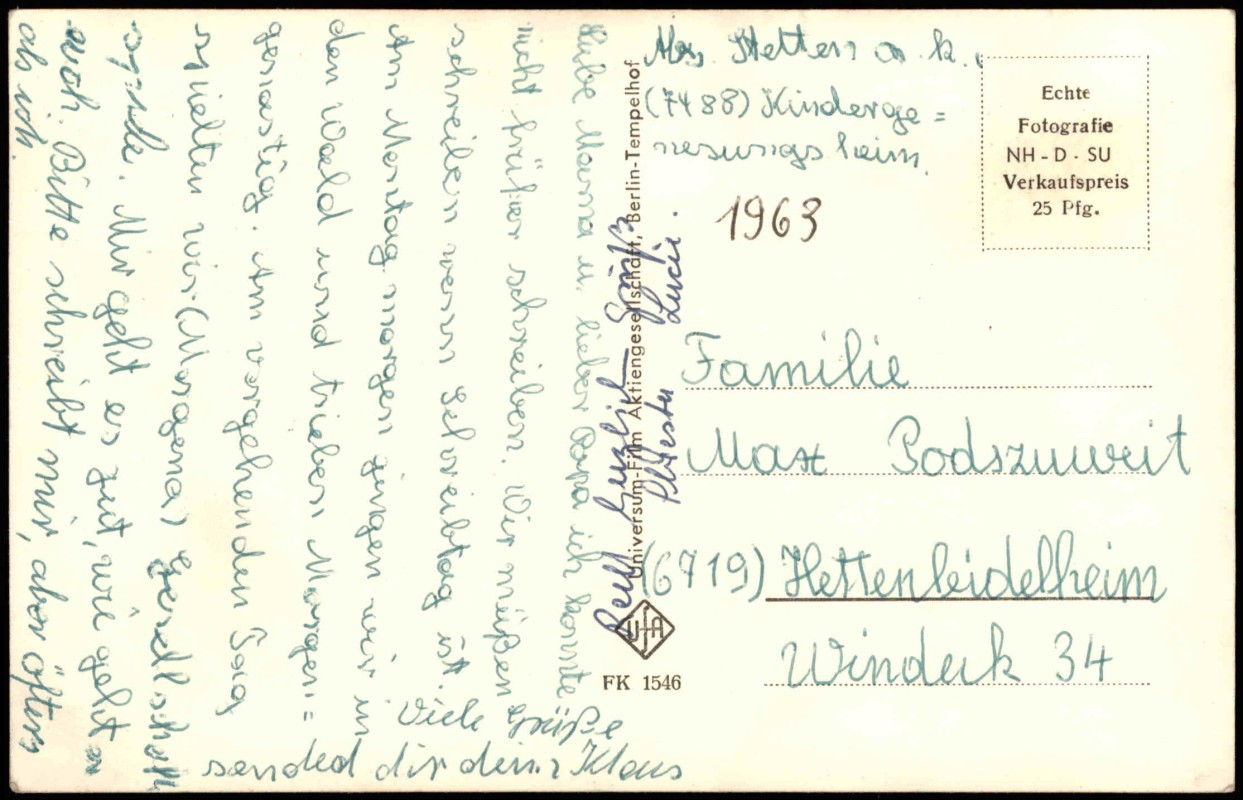 Abs. Stetten a. k. M.
(7488) Kinderge=
nesungsheim.
1963
Echte
Fotografie
NH - D - SU
Verkaufspreis
25 Pfg.
Liebe Mama u. lieber Papa ich konnte
nicht früher schreiben. Wir müßen
schreiben wenn Schreibtag ist.
Am Montag morgen gingen wir in
den Wald und trieben Morgen=
gymastig. Am vorgehenden Tag
spielten wir (Morgens) Gesellschaft
spiele. Mir geht es gut, wie geht es
euch. Bitte schreibt mir, aber öfters
als ich.
Viele Grüße
sended dir deinr Klaus
Gruß
Schwester Lucie.
Universum-Film Aktiengesellschaft, Berlin-Tempelhof
UFA
FK 1546
Familie
Max Podszuweit
(6719) Hettenleidelheim
Windeck 34